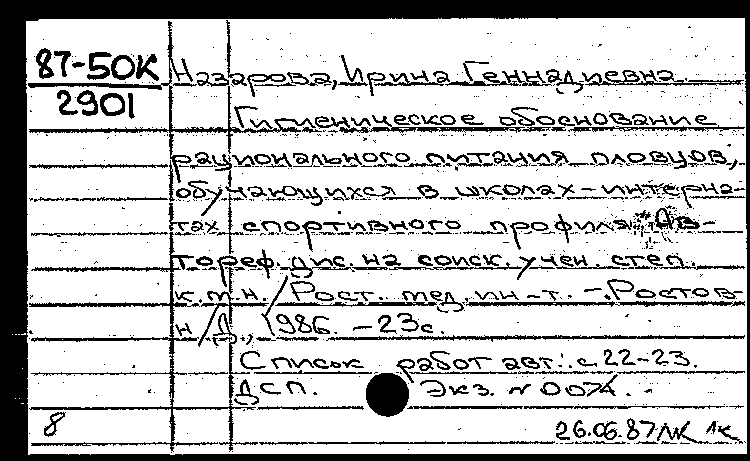 87-50К Назарова, Ирина Геннадиевна
2901
Гигиеническое обоснование
рационального питания пловцов,
обучающихся в школах-интерна-
тах спортивного профиля: Ав-
тореф. дис. на соиск. учен. степ.
к.м.н. / Рост. мед. ин-т. -. Ростов-
н/Д, 1986. - 23с.
Список работ авт.: с.22-23.
ДСП. Экз. N 0074.
8 26.06.87